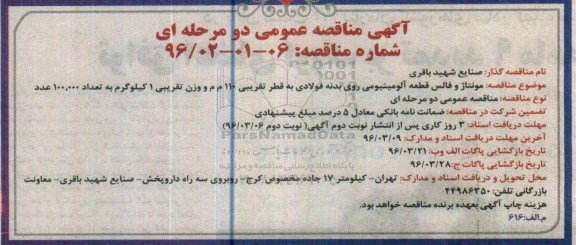 آگهی مناقصه عمومی دو مرحله ای
شماره مناقصه: ۰۶-۰۱-۹۶/۰۲
نام مناقصه گذار: صنایع شهید باقری
موضوع مناقصه: مونتاژ و فالس قطعه آلومینیومی روی بدنه فولادی به قطر تقریبی ۱۱۰ م م و وزن تقریبی ۱ کیلوگرم به تعداد ۱۰۰,۰۰۰ عدد
نوع مناقصه: مناقصه عمومی دو مرحله ای
تضمین شرکت در مناقصه: ضمانت نامه بانکی معادل ۵ درصد مبلغ پیشنهادی
مهلت دریافت اسناد: ۳ روز کاری پس از انتشار نوبت دوم آگهی( نوبت دوم ۹۶/۰۳/۰۶)
آخرین مهلت دریافت اسناد و مدارک: ۹۶/۰۳/۰۹
تاریخ بازگشایی پاکات الف وب: ۹۶/۰۳/۲۱
تاریخ بازگشایی پاکات ج: ۹۶/۰۳/۲۸
محل تحویل و دریافت اسناد و مدارک: تهران- کیلومتر ۱۷ جاده مخصوص کرج- روبروی سه راه داروپخش- صنایع شهید باقری- معاونت
بازرگانی تلفن: ۴۴۹۸۶۳۵۰
هزینه چاپ آگهی بعهده برنده مناقصه خواهد بود.
م.الف: ۶۱۶
ParsNamadData